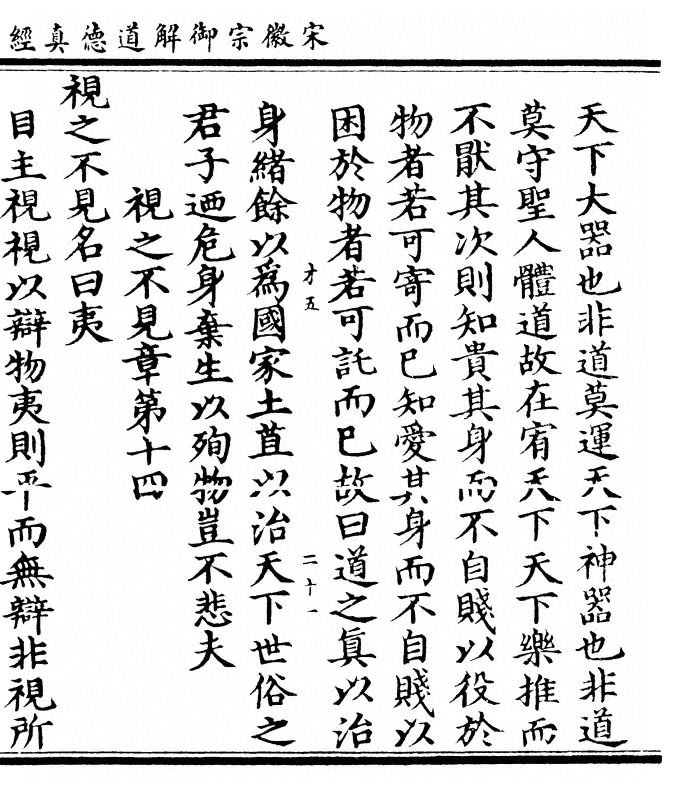 宋徽宗御解道德真經
天下大器也非道莫運天下神器也非道
莫守聖人體道故在宥天下天下樂推而
不厭其次則知貴其身而不自賤以役於
物者若可寄而已知愛其身而不自賤以
困於物者若可託而已故曰道之真以治
才五
二十一
身緒餘以爲國家土苴以治天下世俗之
君子迺危身棄生以殉物豈不悲夫
視之不見章第十四
視之不見名曰夷
目主視視以辯物夷則平而無辯非視所